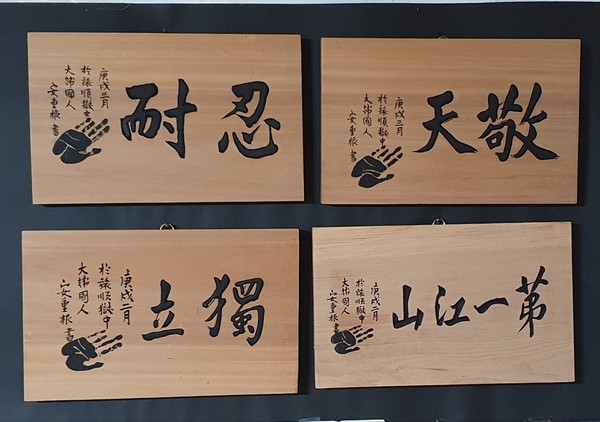 忍耐
庚戌三月
於旅順獄中
大韓國人
安重根 書
敬天
庚戌三月
於旅順獄中
大韓國人
安重根 書
獨立
庚戌二月
於旅順獄中
大韓國人
安重根 書
苐一江山
庚戌二月
於旅順獄中
大韓國人
安重根 書